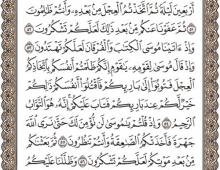 أَرْبَعِينَ لَيْلَةً ثُمَّ ٱتَّخَذْتُمُ ٱلْعِجْلَ مِنۢ بَعْدِهِۦ وَأَنتُمْ ظَٰلِمُونَ
۝٥١ ثُمَّ عَفَوْنَا عَنكُم مِّنۢ بَعْدِ ذَٰلِكَ لَعَلَّكُمْ تَشْكُرُونَ ۝٥٢
وَإِذْ ءَاتَيْنَا مُوسَى ٱلْكِتَٰبَ وَٱلْفُرْقَانَ لَعَلَّكُمْ تَهْتَدُونَ ۝٥٣
وَإِذْ قَالَ مُوسَىٰ لِقَوْمِهِۦ يَٰقَوْمِ إِنَّكُمْ ظَلَمْتُمْ أَنفُسَكُم بِٱتِّخَاذِكُمُ
ٱلْعِجْلَ فَتُوبُوٓا۟ إِلَىٰ بَارِئِكُمْ فَٱقْتُلُوٓا۟ أَنفُسَكُمْ ذَٰلِكُمْ
خَيْرٌ لَّكُمْ عِندَ بَارِئِكُمْ فَتَابَ عَلَيْكُمْ إِنَّهُۥ هُوَ ٱلتَّوَّابُ
ٱلرَّحِيمُ ۝٥٤ وَإِذْ قُلْتُمْ يَٰمُوسَىٰ لَن نُّؤْمِنَ لَكَ حَتَّىٰ نَرَى ٱللَّهَ
جَهْرَةً فَأَخَذَتْكُمُ ٱلصَّٰعِقَةُ وَأَنتُمْ تَنظُرُونَ ۝٥٥ ثُمَّ بَعَثْنَٰكُم
مِّنۢ بَعْدِ مَوْتِكُمْ لَعَلَّكُمْ تَشْكُرُونَ ۝٥٦ وَظَلَّلْنَا عَلَيْكُمُ